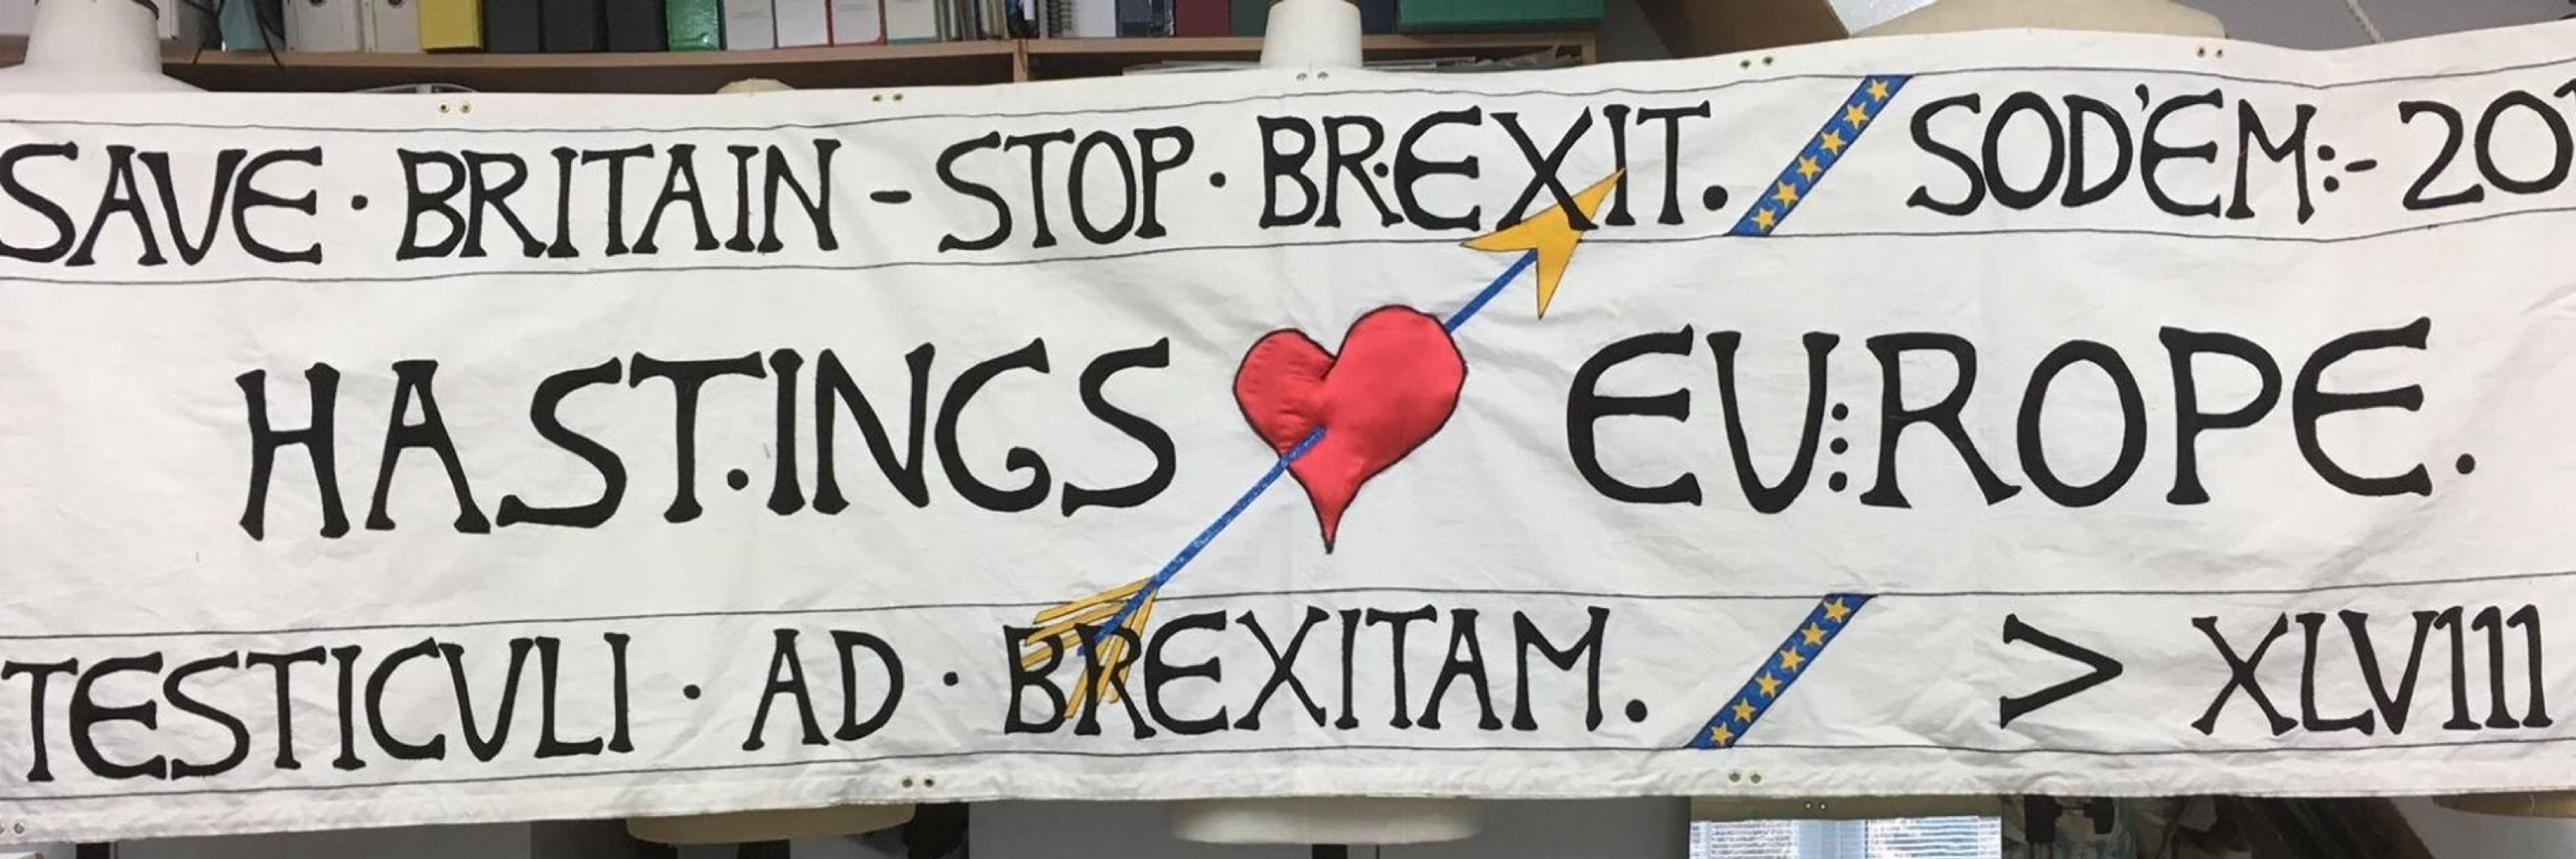 SAVE · BRITAIN - STOP · BR·EXIT. / SOD'EM:- 20
HAST.INGS EU⋮ROPE.
TESTICULI · AD · BREXITAM. / > XLVIII